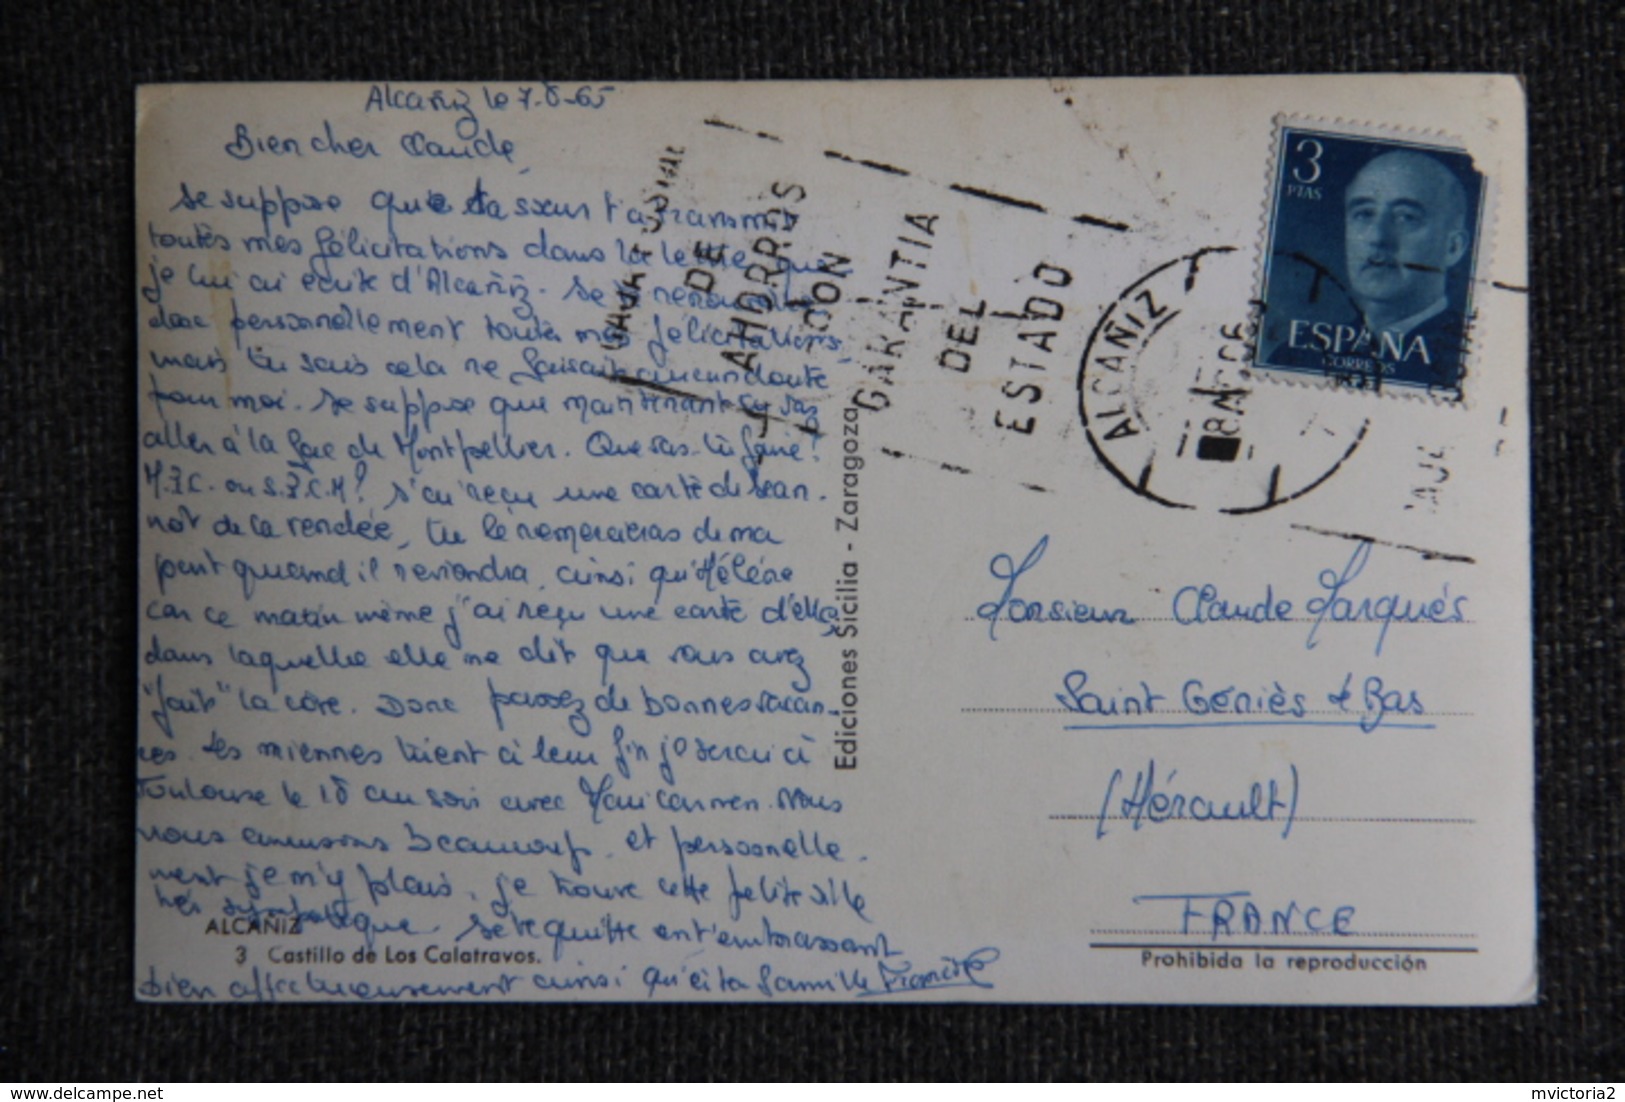 Alcañiz le 7.8-65
Bien cher Claude,
Je suppose que ta sœur t'a transmis
toutes mes félicitations dans la lettre que
je lui ai écrite d'Alcañiz. Je te renouvelle
donc personnellement toutes mes félicitations,
mais tu sais cela ne faisait aucun doute
pour moi. Je suppose que maintenant tu vas
aller à la fac de Montpellier. Que vas-tu faire?
M.P.C. ou S.P.C.N? J'ai reçu une carte de Jean-
not de la Vendée, tu le remercieras de ma
part quand il reviendra, ainsi qu'Hélène
car ce matin même j'ai reçu une carte d'elle,
dans laquelle elle me dit que vous avez
"fait" la côte. Donc passez de bonnes vacan-
ces. Les miennes tirent à leur fin je serai à
Toulouse le 18 au soir avec Mari Carmen. Nous
nous amusons beaucoup. et personnelle-
ment je m'y plais. je trouve cette petite ville
très sympathique. Je te quitte en t'embrassant
bien affectueusement ainsi qu'à ta famille
ALCAÑIZ
3 Castillo de Los Calatravos.
Ediciones Sicilia - Zaragoza
CAJA POSTAL
DE
AHORROS
CON
GARANTIA
DEL
ESTADO
ALCAÑIZ
3
PTAS
ESPAÑA
CORREOS
Monsieur Claude Marqués
Saint Géniès de Bas
(Hérault)
FRANCE
Prohibida la reproducción
www.delcampe.net
mvictoria2